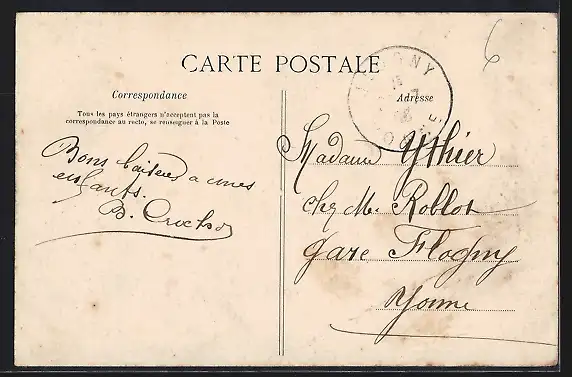 CARTE POSTALE
Correspondance
Adresse
Tous les pays étrangers n'acceptent pas la
correspondance au recto, se renseigner à la Poste
6
Bons baisers a mes
enfants.
B.
Madame Ythier
chez Mr. Roblot
Gare Flogny
Yonne